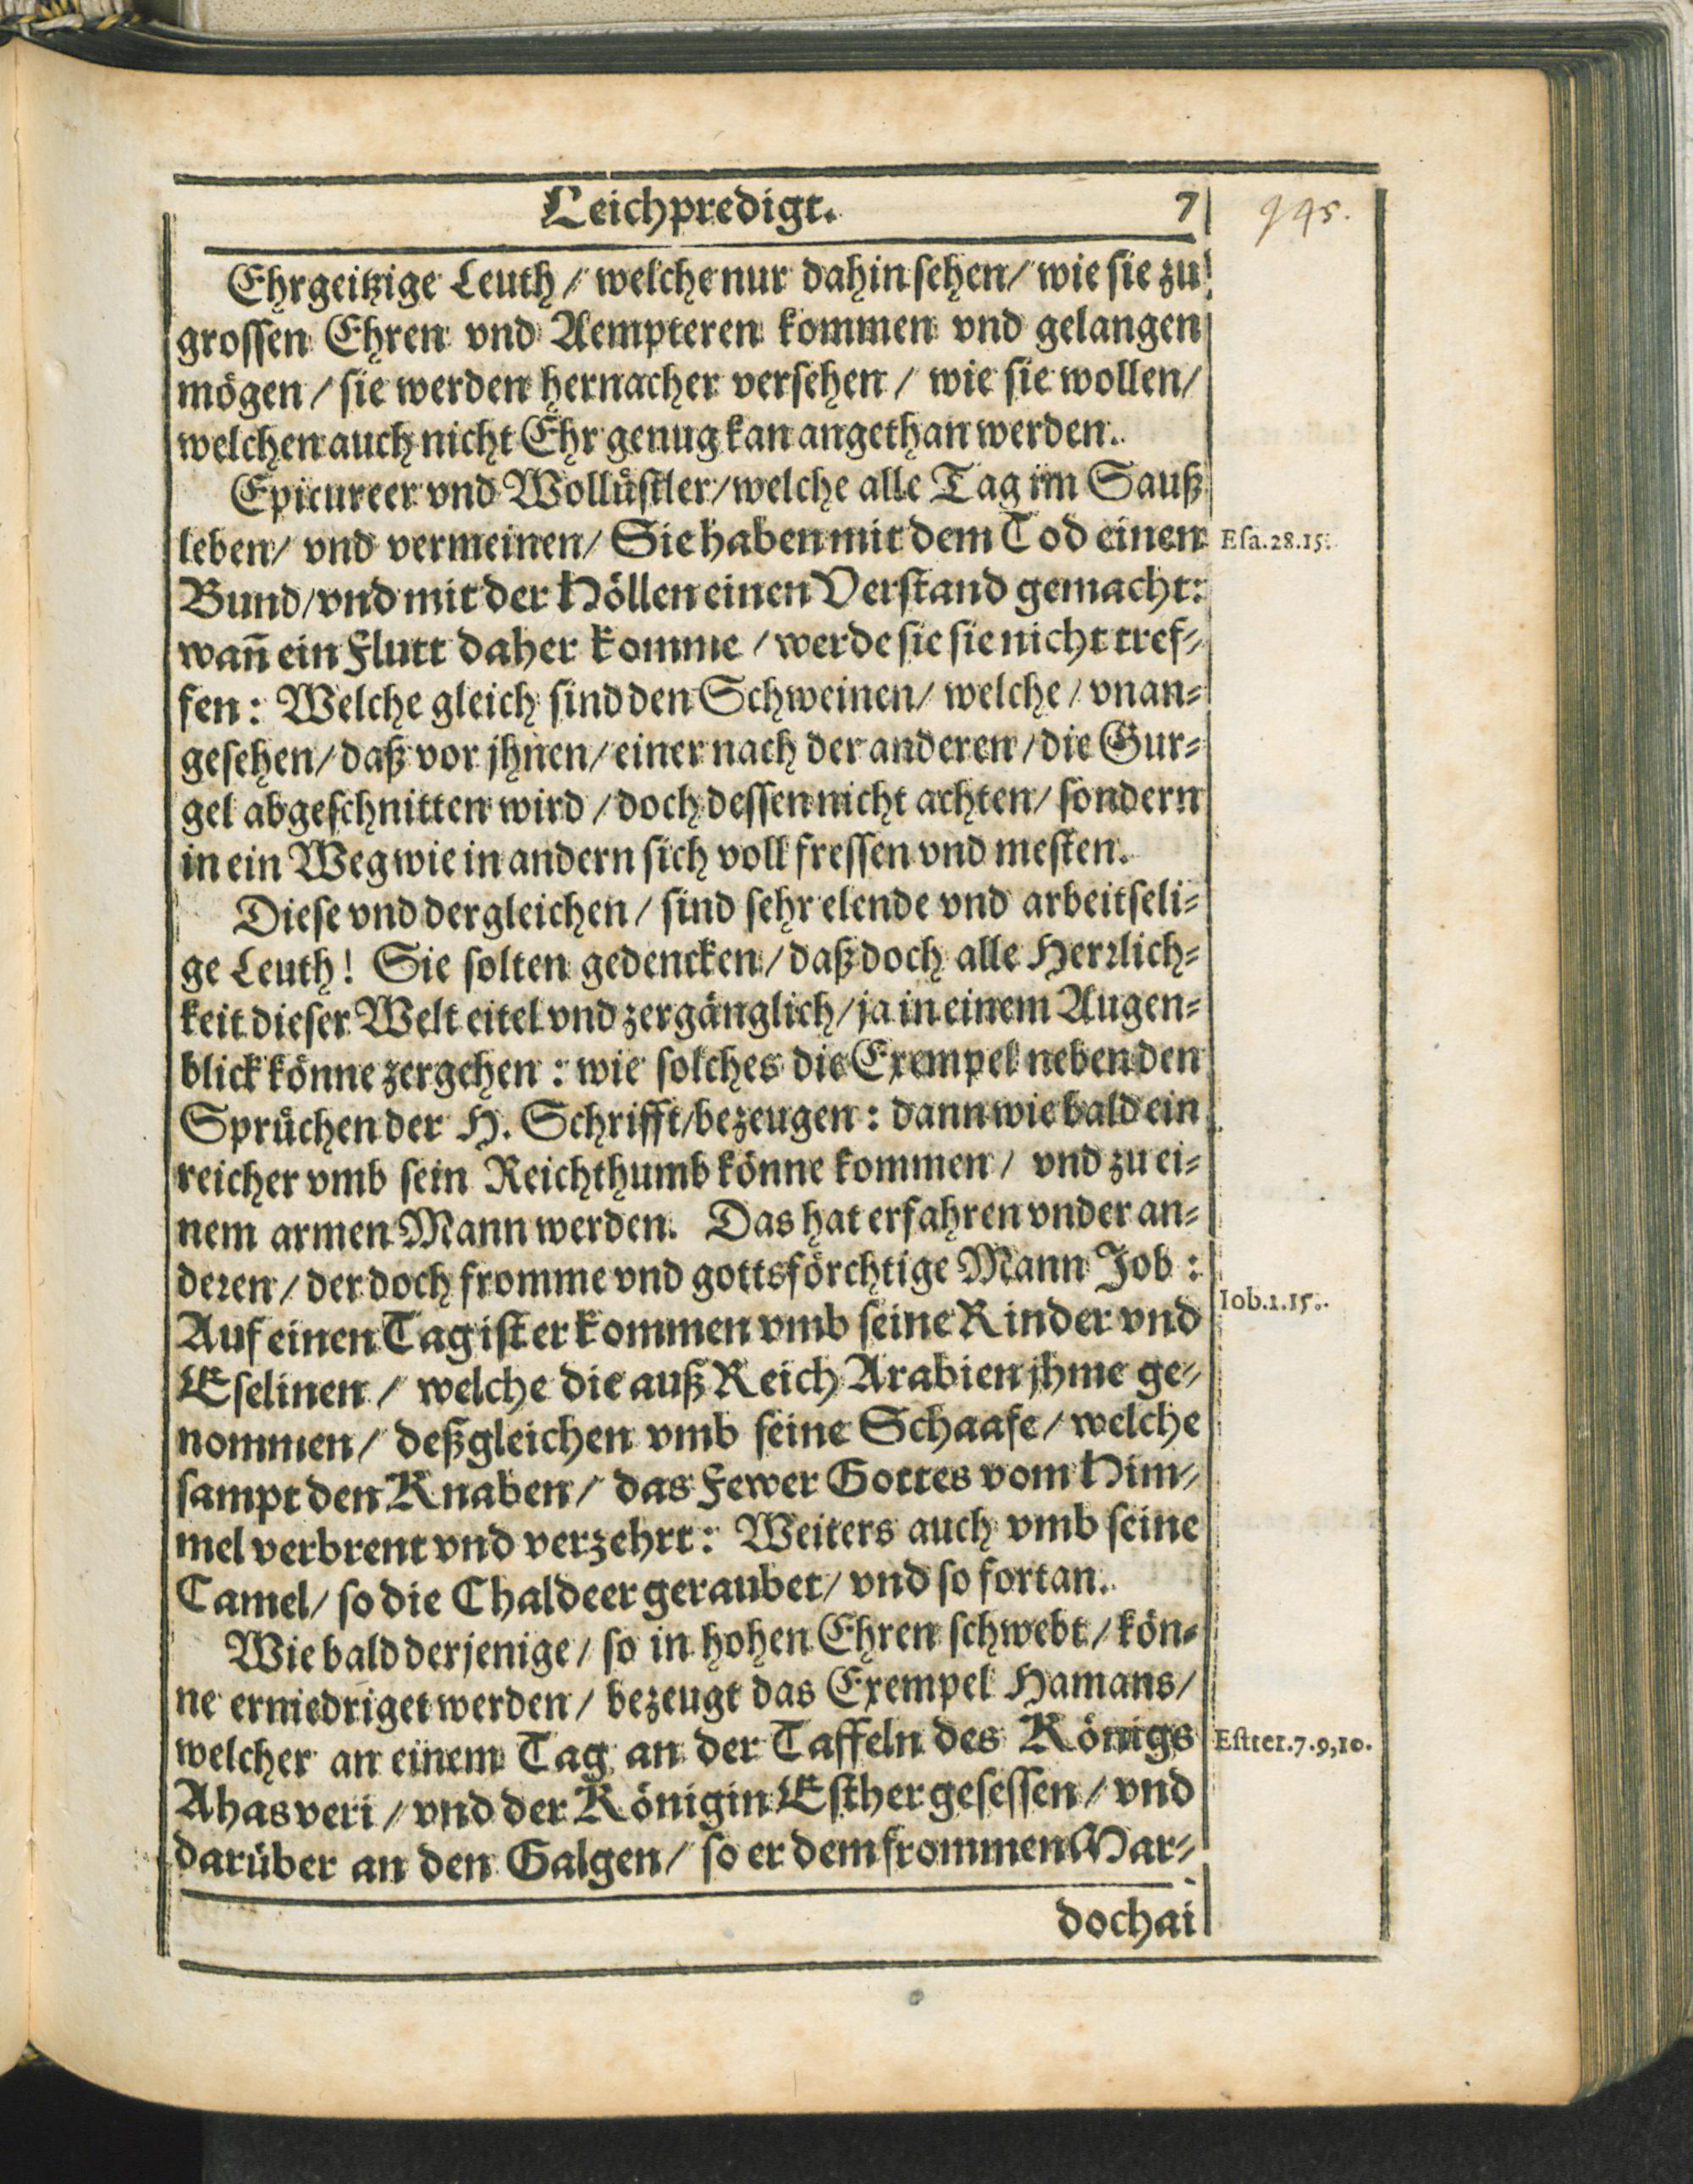 Leichpredigt. 7
945.
Ehrgeitzige Leuth / welche nur dahin sehen / wie sie zu
grossen Ehren vnd Aempteren kommen vnd gelangen
mögen / sie werden hernacher versehen / wie sie wollen /
welchen auch nicht Ehr genug kan angethan werden.
Epicureer vnd Wollüstler / welche alle Tag im Sauß
leben / vnd vermeinen / Sie haben mit dem Tod einen
Esa.28.15.
Bund / vnd mit der Höllen einen Verstand gemacht:
wañ ein Flutt daher komme / werde sie sie nicht tref-
fen: Welche gleich sind den Schweinen / welche / vnan-
gesehen / daß vor jhnen / einer nach der anderen / die Gur-
gel abgeschnitten wird / doch dessen nicht achten / sondern
in ein Weg wie in andern sich voll fressen vnd mesten.
Diese vnd dergleichen / sind sehr elende vnd arbeitseli-
ge Leuth! Sie solten gedencken / daß doch alle Herrlich-
keit dieser Welt eitel vnd zergänglich / ja in einem Augen-
blick könne zergehen: wie solches die Exempel neben den
Sprüchen der H. Schrifft / bezeugen: dann wie bald ein
reicher vmb sein Reichthumb könne kommen / vnd zu ei-
nem armen Mann werden. Das hat erfahren vnder an-
deren / der doch fromme vnd gottsförchtige Mann Job:
Iob.1.15.
Auf einen Tag ist er kommen vmb seine Rinder vnd
Eselinen / welche die auß Reich Arabien jhme ge-
nommen / deßgleichen vmb seine Schaafe / welche
sampt den Knaben / das Fewer Gottes vom Him-
mel verbrent vnd verzehrt: Weiters auch vmb seine
Camel / so die Chaldeer geraubet / vnd so fortan.
Wie bald derjenige / so in hohen Ehren schwebt / kön-
ne erniedriget werden / bezeugt das Exempel Hamans /
welcher an einem Tag an der Taffeln des Königs
Ester.7.9,10.
Ahasveri / vnd der Königin Esther gesessen / vnd
darüber an den Galgen / so er dem frommen Mar-
dochai